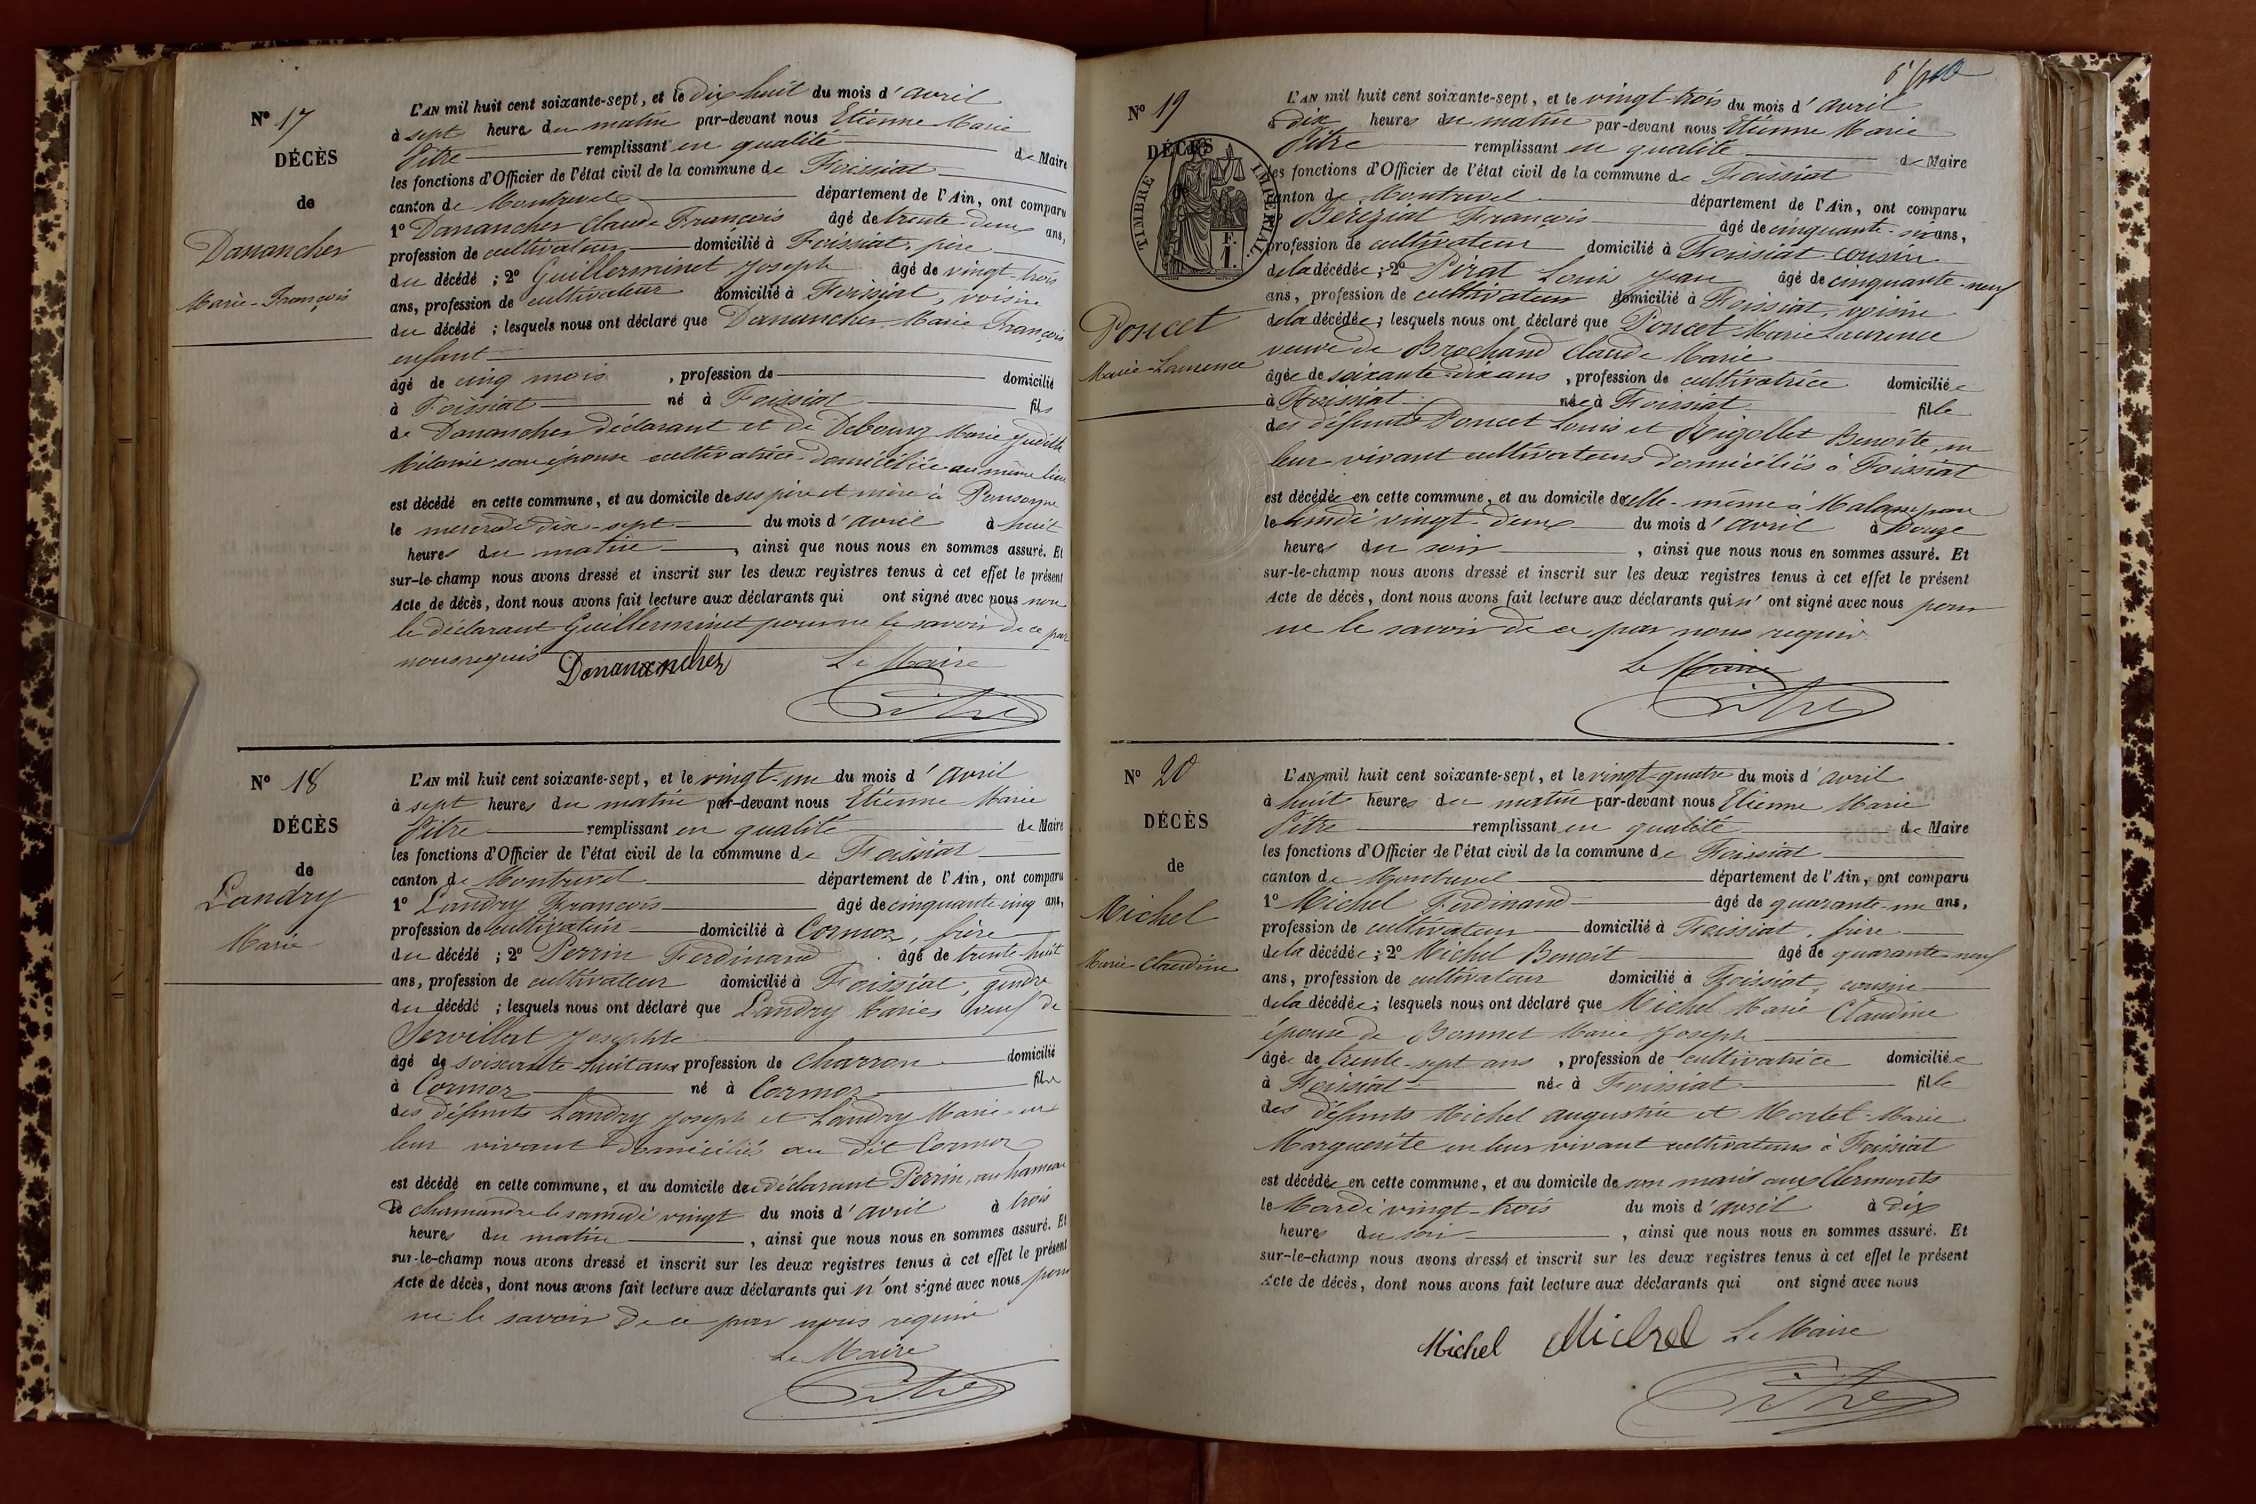 N° 17
DÉCÈS
de
Danancher
Marie-François
L'AN mil huit cent soixante-sept, et le dix huit du mois d'avril
à sept heures du matin par-devant nous Etienne Marie
Pitre remplissant en qualité de Maire
les fonctions d'Officier de l'état civil de la commune de Foissiat
canton de Montrevel département de l'Ain, ont comparu
1° Danancher Claude François âgé de trente-deux ans,
profession de cultivateur domicilié à Foissiat, père
du décédé ; 2° Guillerminet Joseph âgé de vingt-trois
ans, profession de cultivateur domicilié à Foissiat, voisin
du décédé ; lesquels nous ont déclaré que Danancher Marie François
enfant
âgé de cinq mois, profession de domicilié
à Foissiat né à Foissiat fils
de Danancher déclarant et de Debourg Marie Judith
Mélanie son épouse cultivatrice domiciliée au même lieu
est décédé en cette commune, et au domicile de ses père et mère à
le mercredi dix-sept du mois d'avril à huit
heures du matin, ainsi que nous nous en sommes assuré. Et
sur-le-champ nous avons dressé et inscrit sur les deux registres tenus à cet effet le présent
Acte de décès, dont nous avons fait lecture aux déclarants qui ont signé avec nous non
le déclarant Guillerminet pour ne le savoir de ce par
nous requis Dananancher Le Maire
Pitre
N° 18
DÉCÈS
de
Landry
Marie
L'AN mil huit cent soixante-sept, et le vingt-un du mois d'avril
à sept heures du matin par-devant nous Etienne Marie
Pitre remplissant en qualité de Maire
les fonctions d'Officier de l'état civil de la commune de Foissiat
canton de Montrevel département de l'Ain, ont comparu
1° Landry François âgé de cinquante cinq ans,
profession de cultivateur domicilié à Cormoz, frère
du décédé ; 2° Perrin Ferdinand âgé de trente-huit
ans, profession de cultivateur domicilié à Foissiat, gendre
du décédé ; lesquels nous ont déclaré que Landry Marie veuf de
Servillat Josephte
âgé de soixante-huit ans profession de charron domicilié
à Cormoz né à Cormoz fils
des défunts Landry Joseph et Landry Marie en
leur vivant domiciliés au dit Cormoz
est décédé en cette commune, et au domicile du déclarant Perrin, au hameau
de Charmandre le samedi vingt du mois d'avril à trois
heures du matin, ainsi que nous nous en sommes assuré. Et
sur-le-champ nous avons dressé et inscrit sur les deux registres tenus à cet effet le présent
Acte de décès, dont nous avons fait lecture aux déclarants qui n'ont signé avec nous pour
ne le savoir de ce par nous requis
Le Maire
Pitre
N° 19
DÉCÈS
TIMBRE IMPÉRIAL
Poncet
Marie-Laurence
L'AN mil huit cent soixante-sept, et le vingt-trois du mois d'avril
à dix heures du matin par-devant nous Etienne Marie
Pitre remplissant en qualité de Maire
les fonctions d'Officier de l'état civil de la commune de Foissiat
canton de Montrevel département de l'Ain, ont comparu
1° Bereziat François âgé de cinquante-six ans,
profession de cultivateur domicilié à Foissiat cousin
de la décédée ; 2° Pirat Louis Jean âgé de cinquante-neuf
ans, profession de cultivateur domicilié à Foissiat, voisin
de la décédée ; lesquels nous ont déclaré que Poncet Marie Laurence
veuve de Brochand Claude Marie
âgée de soixante-dix ans, profession de cultivatrice domiciliée
à Foissiat née à Foissiat fille
des défunts Poncet Louis et Rigollet Benoîte, en
leur vivant cultivateurs domiciliés à Foissiat
est décédée en cette commune, et au domicile d'elle-même à
le lundi vingt-deux du mois d'avril à onze
heures du soir, ainsi que nous nous en sommes assuré. Et
sur-le-champ nous avons dressé et inscrit sur les deux registres tenus à cet effet le présent
Acte de décès, dont nous avons fait lecture aux déclarants qui n'ont signé avec nous pour
ne le savoir de ce par nous requis
Le Maire
Pitre
N° 20
DÉCÈS
de
Michel
Marie-Claudine
L'AN mil huit cent soixante-sept, et le vingt-quatre du mois d'avril
à huit heures du matin par-devant nous Etienne Marie
Pitre remplissant en qualité de Maire
les fonctions d'Officier de l'état civil de la commune de Foissiat
canton de Montrevel département de l'Ain, ont comparu
1° Michel Ferdinand âgé de quarante-un ans,
profession de cultivateur domicilié à Foissiat, frère
de la décédée ; 2° Michel Benoit âgé de quarante-neuf
ans, profession de cultivateur domicilié à Foissiat, cousin
de la décédée ; lesquels nous ont déclaré que Michel Marie Claudine
épouse de Bonnet Marie Joseph
âgée de trente-sept ans, profession de cultivatrice domiciliée
à Foissiat née à Foissiat fille
des défunts Michel Augustin et Mortel Marie
Marguerite en leur vivant cultivateurs à Foissiat
est décédée en cette commune, et au domicile de son mari aux Clermonts
le Mardi vingt-trois du mois d'avril à dix
heures du soir, ainsi que nous nous en sommes assuré. Et
sur-le-champ nous avons dressé et inscrit sur les deux registres tenus à cet effet le présent
Acte de décès, dont nous avons fait lecture aux déclarants qui ont signé avec nous
Michel Michel Le Maire
Pitre